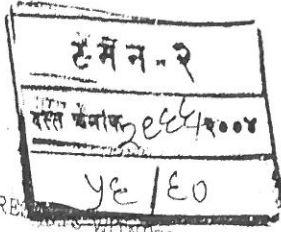 ट म न - २
दस्त क्रमांक २९६६/२००४
५९ / ६०